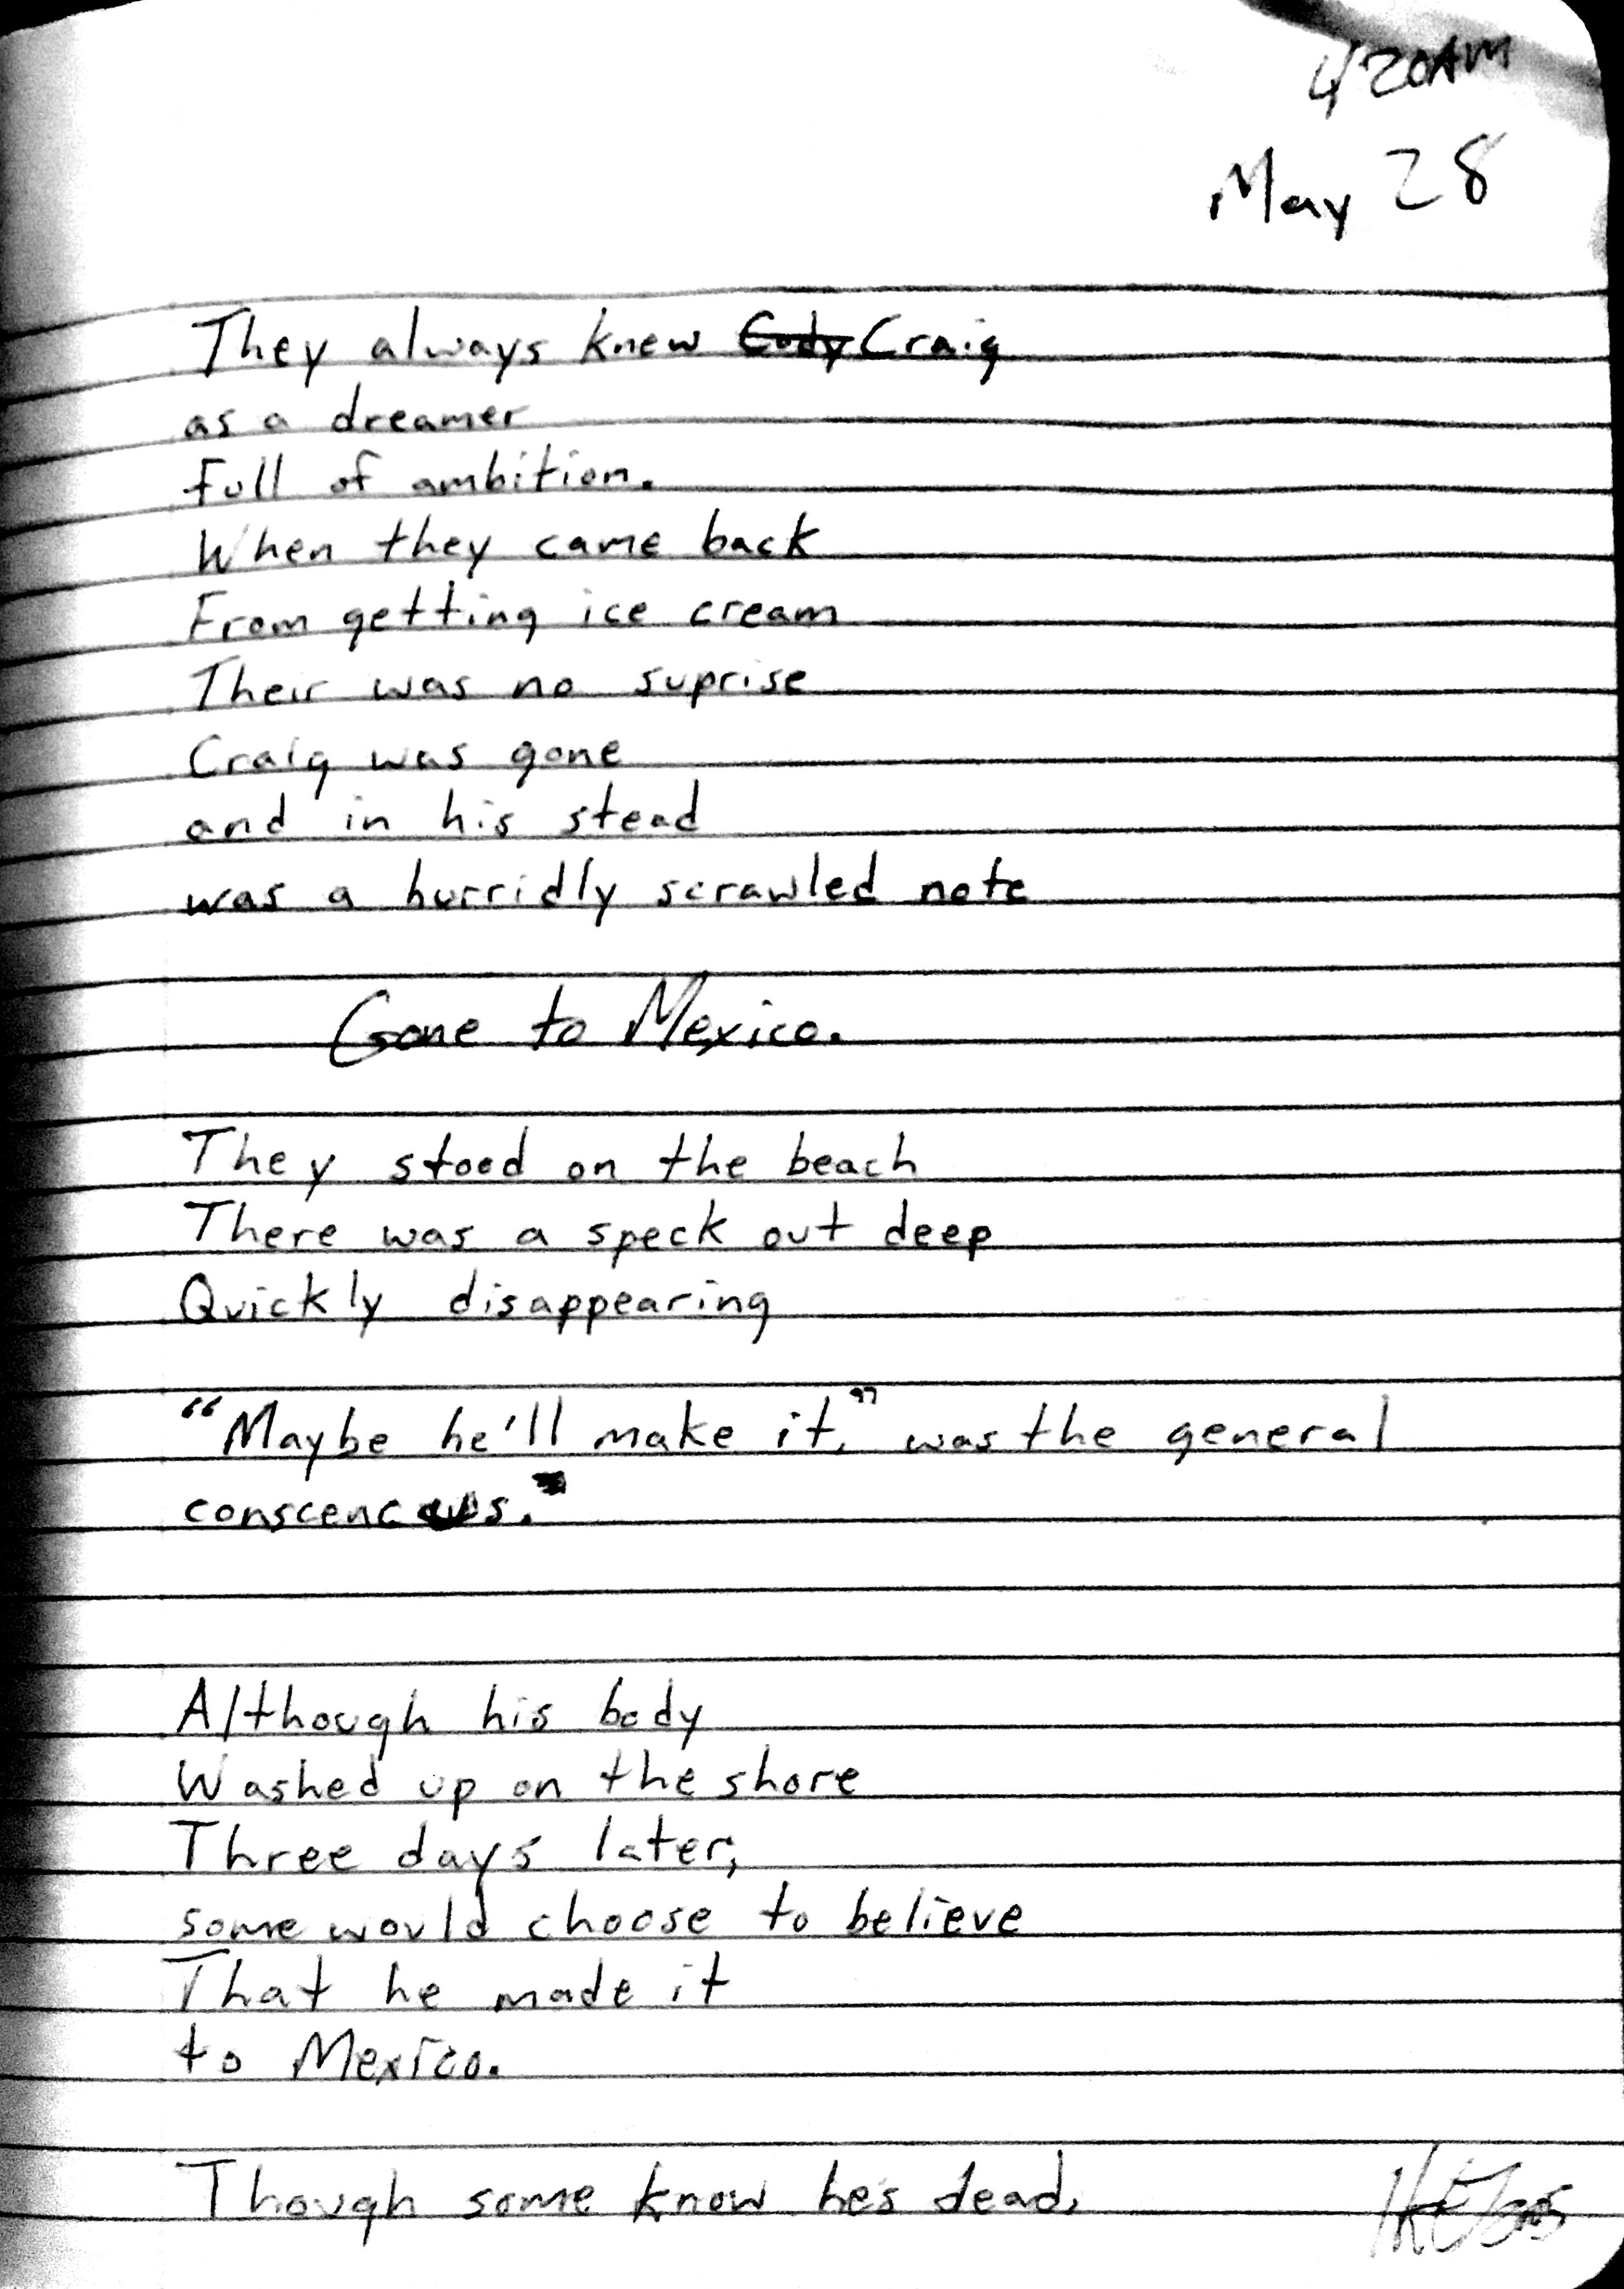 4:20AM
May 28
They always knew Cody Craig
as a dreamer
full of ambition.
When they came back
From getting ice cream
Their was no suprise
Craig was gone
and in his stead
was a hurridly scrawled note
Gone to Mexico.
They stood on the beach
There was a speck out deep
Quickly disappearing
"Maybe he'll make it," was the general
conscencus.
Although his body
Washed up on the shore
Three days later,
some would choose to believe
That he made it
to Mexico.
Though some know he's dead.